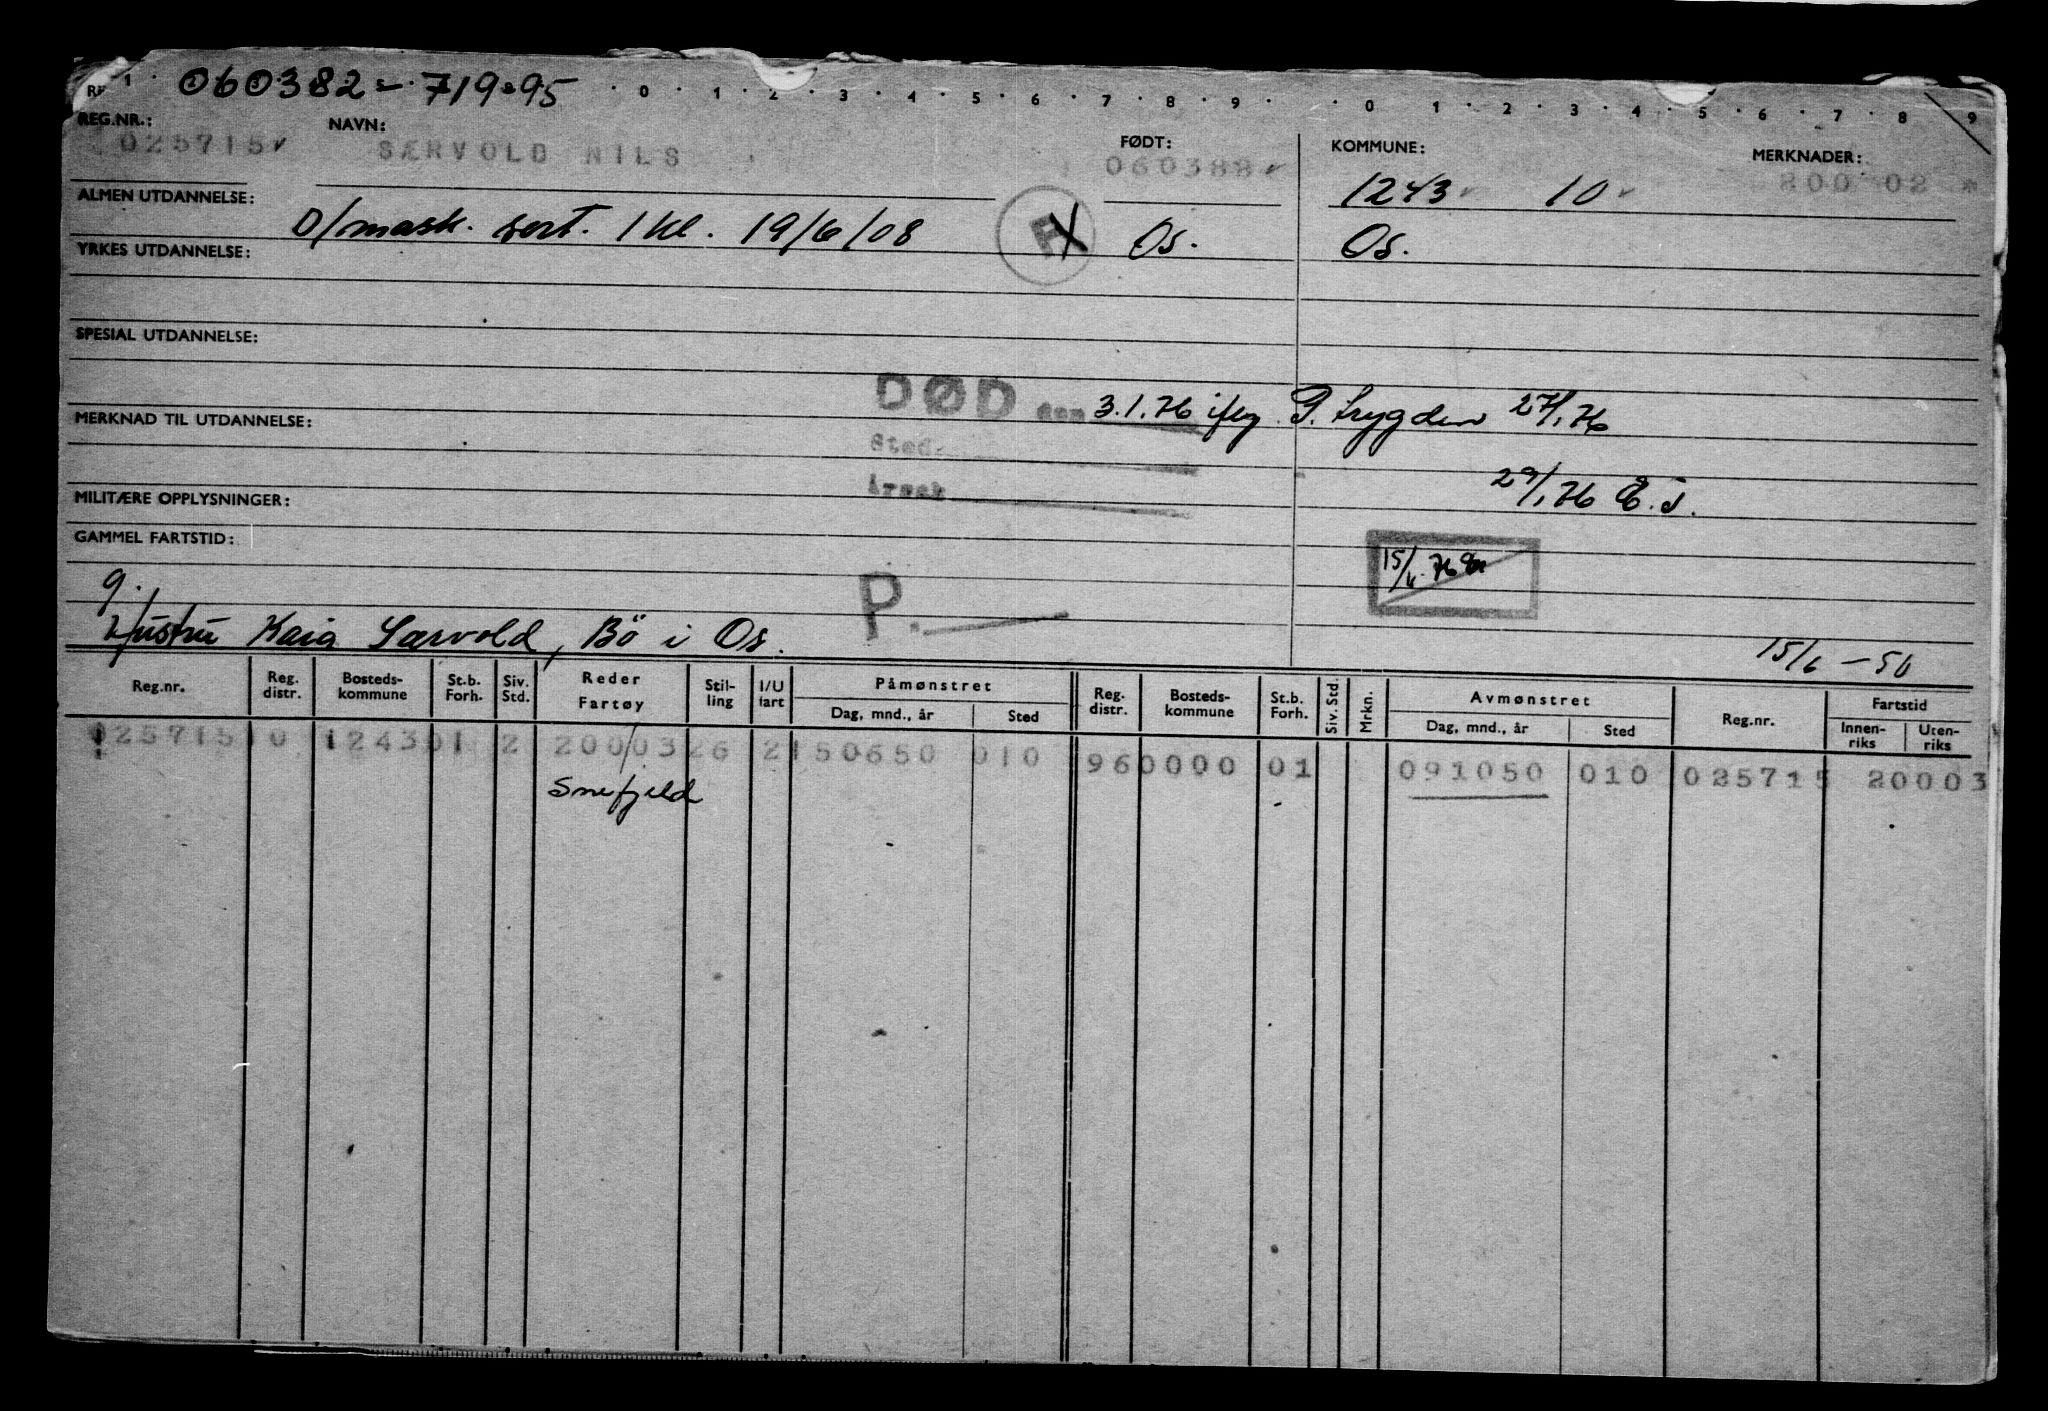 060382 - 719 95
1 0 1 2 3 4 5 6 7 8 9 0 1 2 3 4 5 6 7 8 9
REG.NR.: NAVN: FØDT: KOMMUNE: MERKNADER:
025715 SÆRVOLD NILS 060388 1243 10 800 02
ALMEN UTDANNELSE:
D/mask. sert. 1 kl. 19/6/08 Os. Os.
YRKES UTDANNELSE:
SPESIAL UTDANNELSE:
DØD den 3.1.76 iflg. P. trygden 27/1 76
MERKNAD TIL UTDANNELSE:
Sted.
29/1 76
Årsak
MILITÆRE OPPLYSNINGER:
GAMMEL FARTSTID:
15/6 76
g.
P.
Hustru Kaia Særvold, Bö i Os.
15/6 - 50
Reg.nr. Reg. distr. Bosteds-kommune St.b. Forh. Siv. Std. Reder Fartøy Stil-ling I/U fart Påmønstret Dag, mnd., år Sted Reg. distr. Bosteds-kommune St.b. Forh. Siv. Std. Mrkn. Avmønstret Dag, mnd., år Sted Reg.nr. Fartstid Innen-riks Uten-riks
025715 10 1243 01 2 200/03 26 2 150650 010 96 0000 01 091050 010 025715 20003
Snefjeld